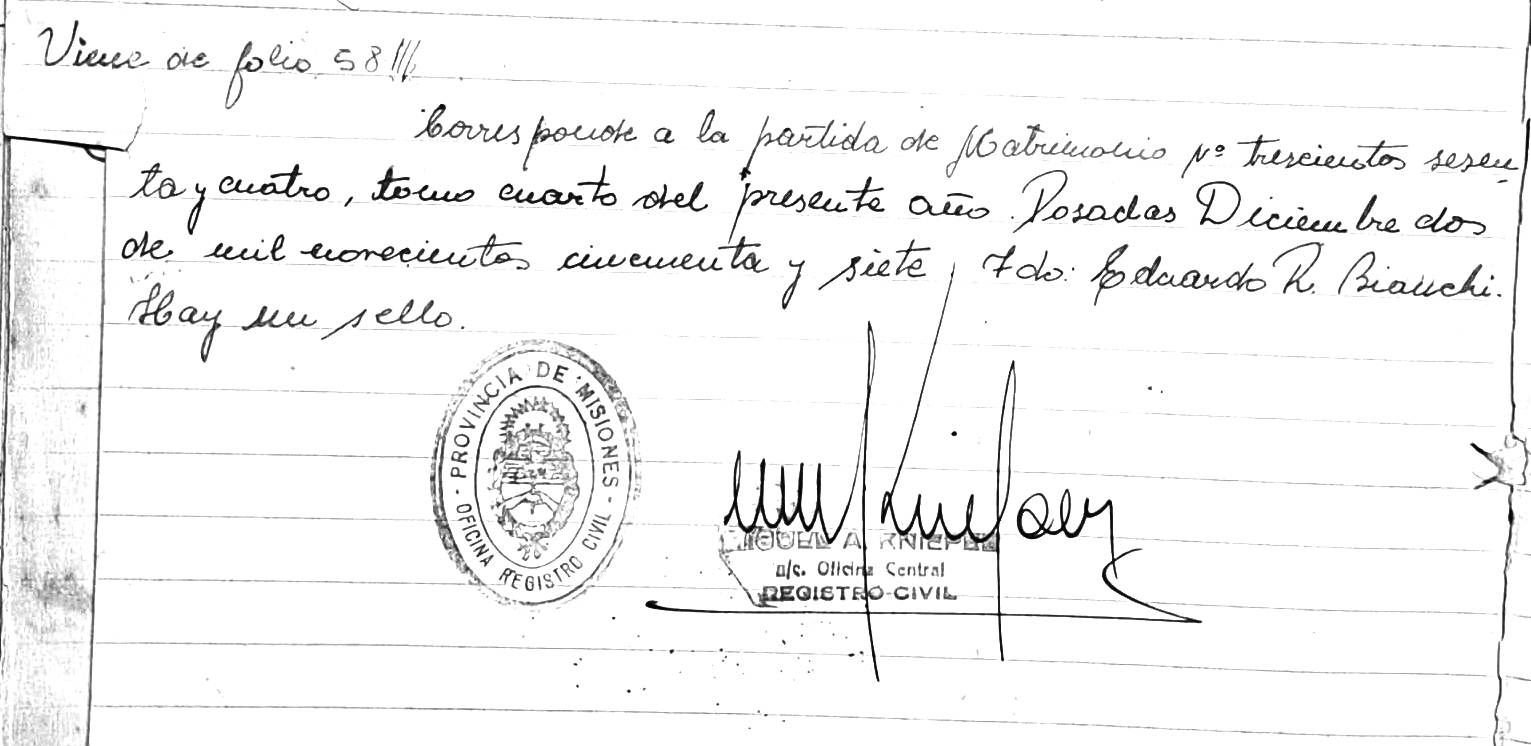 Viene de folio 58///
Corresponde a la partida de Matrimonio Nº trescientos sesen
ta y cuatro, tomo cuarto del presente año. Posadas Diciembre dos
de mil novecientos cincuenta y siete, Fdo: Eduardo R. Bianchi.
Hay un sello.
PROVINCIA DE MISIONES
- OFICINA REGISTRO CIVIL -
MIGUEL A.
a/c. Oficina Central
REGISTRO CIVIL